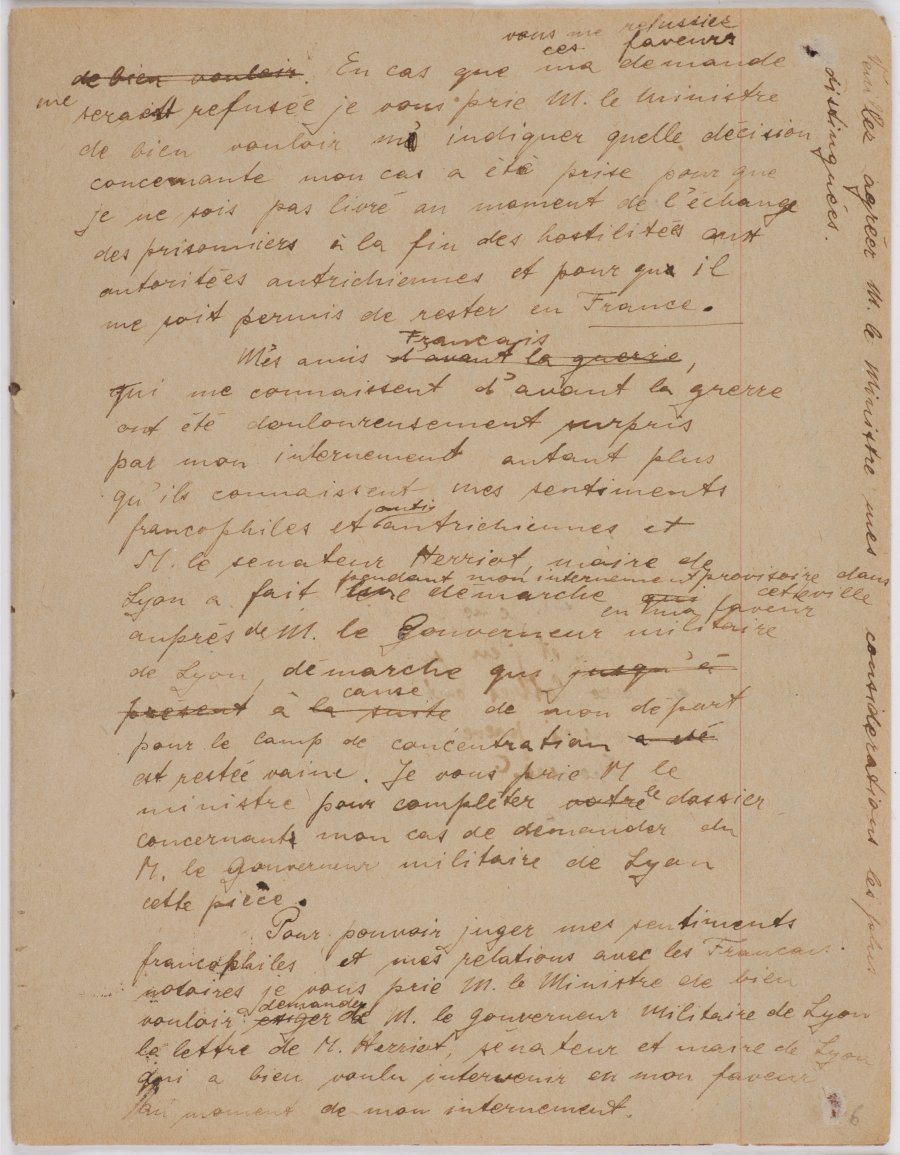 vous me refussiez
ces faveurs
de bien vouloir. En cas que ma demande
me serait refusée je vous prie M. le Ministre
de bien vouloir m'indiquer quelle décision
concernante mon cas a été prise pour que
je ne sois pas livré au moment de l'échange
des prisonniers à la fin des hostilitées aux
autoritées autrichiennes et pour que il
me soit permis de rester en France.
Français
Mes amis d'avant la guerre,
qui me connaissent d'avant la grerre
ont été douloureusement surpris
par mon internement autant plus
qu'ils connaissent mes sentiments
antis
francophiles et autrichiennes et
M. le senateur Herriot, maire de
pendant mon internement provisoire dans
Lyon a fait une démarche qui cette ville
en ma faveur
auprés de M. le Gouverneur militaire
de Lyon, démarche qui jusqu'à
cause
present à la suite de mon départ
pour le camp de concéntration a été
est restée vaine. Je vous prie M le
ministre pour compléter votre le dossier
concernant mon cas de demander du
M. le gouverneur militaire de Lyon
cette pièce.
Pour pouvoir juger mes sentiments
francophiles et mes relations avec les Francais
notoires je vous prie M. le Ministre de bien
demander
vouloir exiger de M. le gouverneur Militaire de Lyon
la lettre de M. Herriot, sénateur et maire de Lyon
qui a bien voulu intervenir en mon faveur
au moment de mon internement.
Veuillez agréer M. le Ministre mes considerations les plus
disdinguées.
6